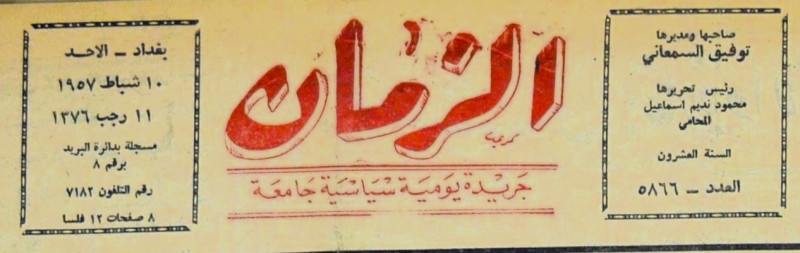 صاحبها ومديرها
توفيق السمعاني
رئيس تحريرها
محمود نديم اسماعيل
المحامي
السنة العشرون
العدد – ٥٨٦٦
الزمان
جريدة يومية سياسية جامعة
بغداد – الاحد
١٠ شباط ١٩٥٧
١١ رجب ١٣٧٦
مسجلة بدائرة البريد
برقم ٨
رقم التلفون ٧١٨٢
٨ صفحات ١٢ فلسا